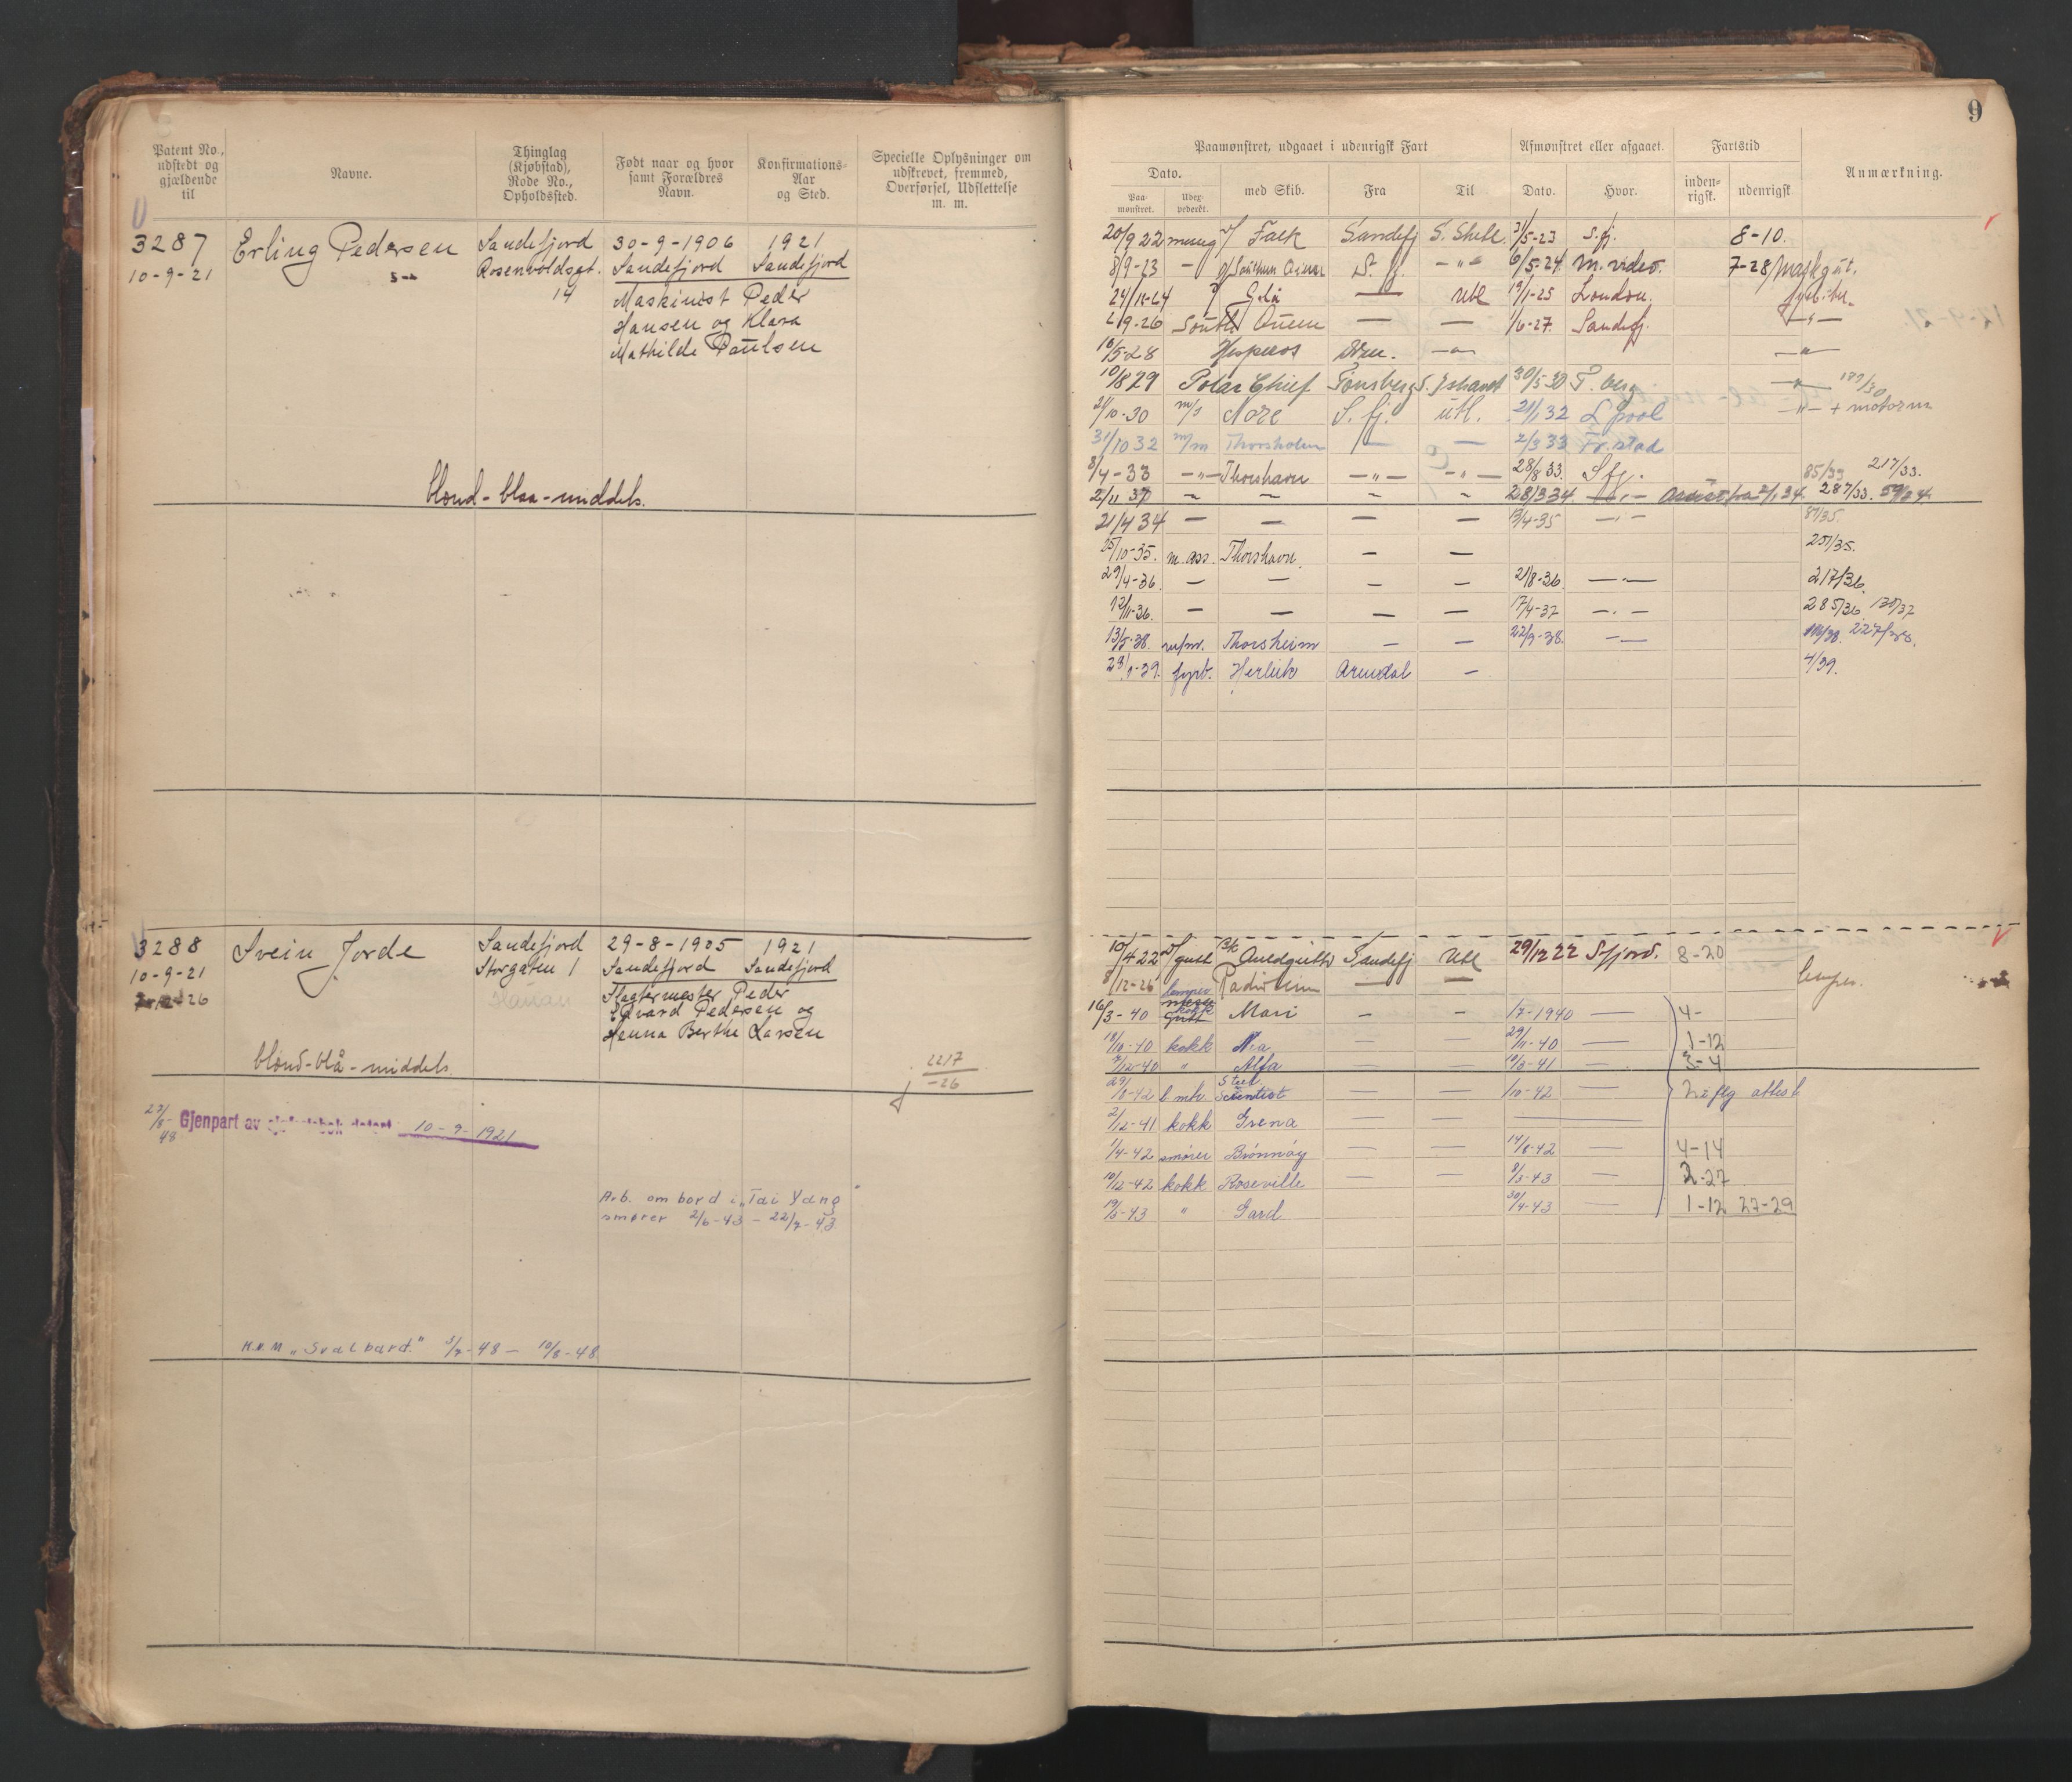 9
Patent No., udstedt og gjældende til
Navne.
Thinglag (Kjøbstad), Rode No., Opholdssted.
Født naar og hvor samt Forældres Navn.
Konfirmations-Aar og Sted.
Specielle Oplysninger om udskrevet, fremmed, Overførsel, Udslettelse m. m.
Paamønstret, udgaaet i udenrigsk Fart
Afmønstret eller afgaaet.
Fartstid
Anmærkning.
Dato.
med Skib.
Fra
Til
Dato.
Hvor.
inden-rigsk.
udenrigsk
Paa-mønstret.
Udex-pederet.
3287 Erling Pedersen Sandefjord 30-9-1906 1921
10-9-21 Rosenvoldsgt. Sandefjord Sandefjord
14 Maskinist Peder
Hansen og Klara
Mathilde Paulsen
blond - blaa - middels.
20/9 22 Falk Sandefj S. Shetl. 5-23 S.fj. 8-10.
8/9-23 — S. fj. — " — 6/5-24 M. video. 7-28
Utl 19/1-25 London.
9-26 South. Queen — — 1/6-27 Sandefj. — " —
10/5 28 Hesperos — " — — " —
10/8 29 Polar Chief Tønsberg S. Ishavet 30/5 30 T. berg — " —
10-30 m/s Nore S. fj. utl. 21/1 32 L pool — " — + motorm
31/10 32 m/m Thorsholm — — 2/3 33 Fr. stad
8/4-33 — " — Thorshavn — " — — " — 28/8 33. S fj. 85/33 217/33.
2/11 — — — — 28/3 34. — " — 287/33.
21/4 34 — — — — 13/4-35 — " — 81/35.
25/10-35. m. ass. Thorshavn. — — 251/35.
29/4-36. — — — — 21/8-36. — " — 217/36.
12/11-36. — — — — 17/4-37 — " — 285/36 130/37
13/5-38. m/m. Thorsheim — — 22/9-38. — " — 227/38.
28/1-39. fyrb. Arendal — 4/39.
3288 Svein Jorde Sandefjord 29-8-1905 1921
10-9-21 Storgaten 1 Sandefjord Sandefjord
26 Slagtermester Peder
Edvard Pedersen og
Hanna Berthe Larsen
blond-blå-middels.
2217
-26
22/8-48 Gjenpart av sjøfartsbok datert 10-9-1921
Arb. om bord i „Tai Yang"
smører 2/6-43 — 22/7-43
K.N.M „Svalbard." 3/7-48 — 10/8-48
10/4 22 gutt Sandefj Utl 29/12 22 Sfjord. 8-20
8/12-26 — — lemper.
16/3-40 kokk Mari — — 1/7-1940 — 4-
18/10-40 kokk Nea — — 29/11-40 — 1-12
7/12-40 " Alfa — — 10/3-41 — 3-4
Steel Scientist — — 10-42 —
2/12-41 kokk Grena
1/4-42 smører Brønnøy — — 14/8-42 — 4-14
10/12-42 kokk Roseville — — 9/3-43 — 2-27
19/3-43 " Gard — — 30/4-43 — 1-12 27-29